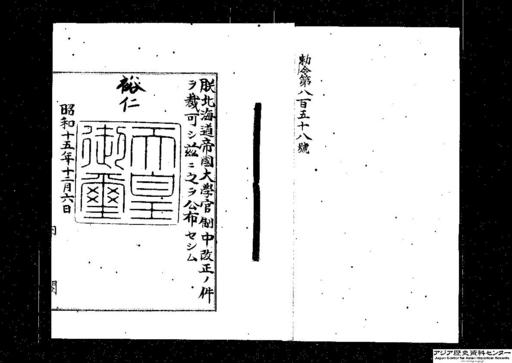 勅令第八百五十八號
朕北海道帝國大學官制中改正ノ件
ヲ裁可シ茲ニ之ヲ公布セシム
裕仁
天皇
御璽
昭和十五年十二月六日
内閣
アジア歴史資料センター
Japan Center for Asian Historical Records